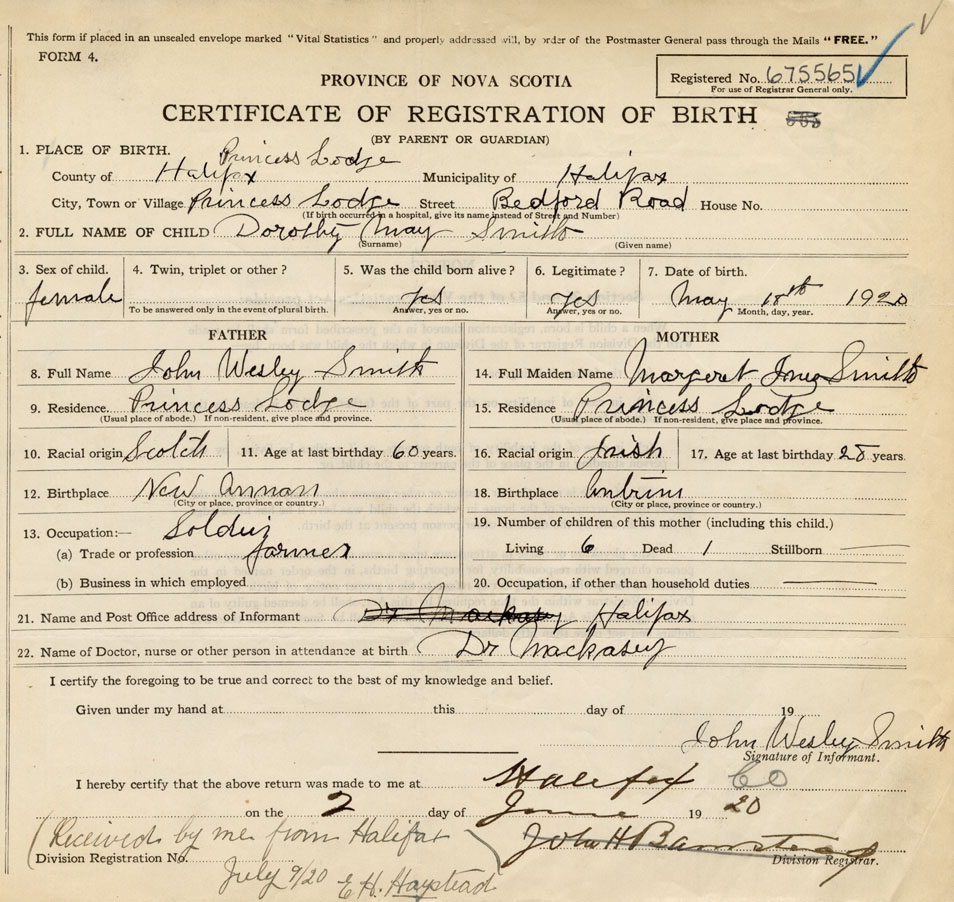 This form if placed in an unsealed envelope marked "Vital Statistics" and properly addressed will, by order of the Postmaster General pass through the Mails "FREE."
FORM 4.
PROVINCE OF NOVA SCOTIA
Registered No. 675565
For use of Registrar General only.
CERTIFICATE OF REGISTRATION OF BIRTH
(BY PARENT OR GUARDIAN)
1. PLACE OF BIRTH. Princess Lodge
County of Halifax Municipality of Halifax
City, Town or Village Princess Lodge Street Bedford Road House No.
(If birth occurred in a hospital, give its name instead of Street and Number)
2. FULL NAME OF CHILD Dorothy May Smith
(Surname) (Given name)
3. Sex of child. 4. Twin, triplet or other? 5. Was the child born alive? 6. Legitimate? 7. Date of birth.
female yes yes May 18th 1920
To be answered only in the event of plural birth. Answer, yes or no. Answer, yes or no. Month, day, year.
FATHER
8. Full Name John Wesley Smith
9. Residence. Princess Lodge
(Usual place of abode.) If non-resident, give place and province.
10. Racial origin Scotch 11. Age at last birthday 60 years.
12. Birthplace New Annan
(City or place, province or country.)
13. Occupation:— Soldier
(a) Trade or profession farmer
(b) Business in which employed
MOTHER
14. Full Maiden Name Margeret Smith
15. Residence. Princess Lodge
(Usual place of abode.) If non-resident, give place and province.
16. Racial origin Irish 17. Age at last birthday 28 years.
18. Birthplace Antrim
(City or place, province or country.)
19. Number of children of this mother (including this child.)
Living 6 Dead 1 Stillborn —
20. Occupation, if other than household duties —
21. Name and Post Office address of Informant Dr Mackasey Halifax
22. Name of Doctor, nurse or other person in attendance at birth Dr Mackasey
I certify the foregoing to be true and correct to the best of my knowledge and belief.
Given under my hand at this day of 19
John Wesley Smith
Signature of Informant.
I hereby certify that the above return was made to me at Halifax Co
on the 2 day of June 19 20
(Received by me from Halifax John H
Division Registration No. Division Registrar.
July 9/20 E H. Haystead